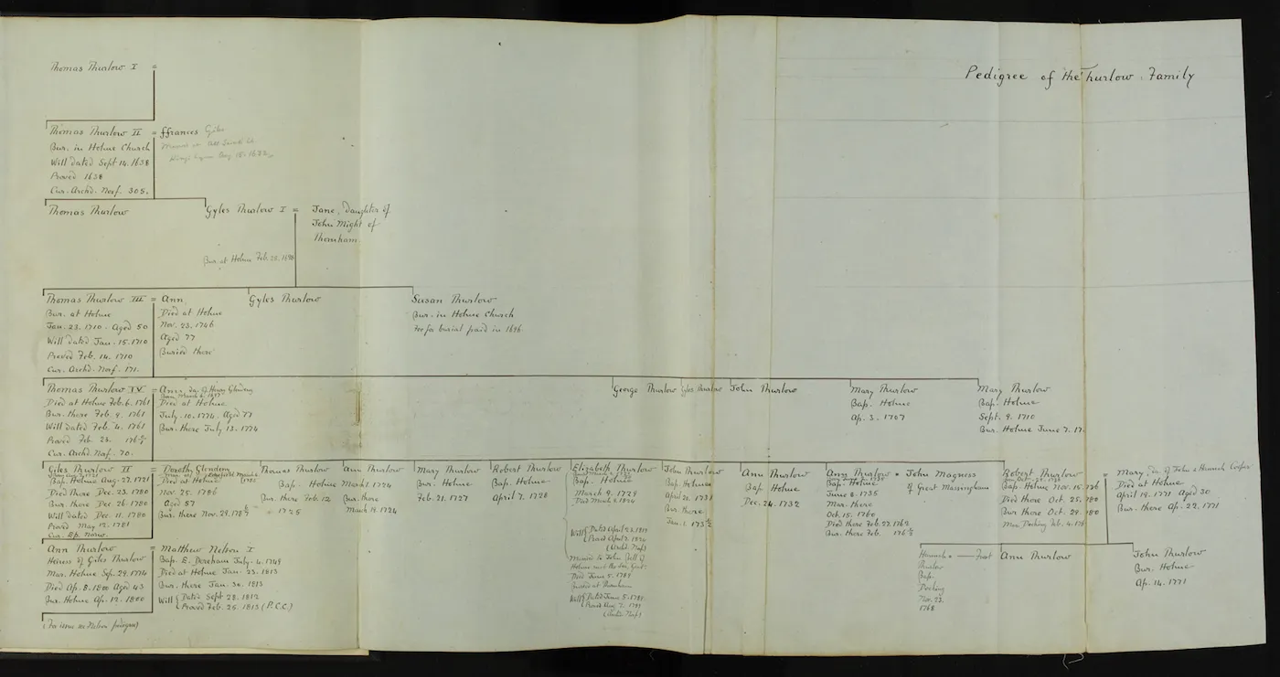 Pedigree of the Thurlow Family
Thomas Thurlow I =
Thomas Thurlow II = ffrances Giles
Bur. in Holme Church
Will dated Sept 14. 1638
Proved 1638
Cur. Archd. Norf. 305.
Thomas Thurlow
Gyles Thurlow I =
Jane, daughter of
John Might of
Thornham
Bur. at Holme Feb. 22.
Thomas Thurlow III =
Bur. at Holme
Jan. 23. 1710. Aged 50
Will dated Jan. 15. 1710
Proved Feb. 14. 1710
Cur. Archd. Norf. 171.
Ann
Died at Holme
Nov. 23. 1746
Aged 77
Buried there
Gyles Thurlow
Susan Thurlow
Bur. in Holme Church
Fee for burial paid in 1696
Thomas Thurlow IV =
Died at Holme Feb. 6. 1761
Bur. there Feb. 9. 1761
Will dated Feb. 4. 1761
Proved Feb. 26.
Cur. Archd. Norf. 70.
Ann
Died at Holme
July. 10. 1774. Aged 77
Bur. there July 13. 1774
George Thurlow
Gyles Thurlow
John Thurlow
Mary Thurlow
Bap. Holme
Ap. 3. 1707
Mary Thurlow
Bap. Holme
Sept. 9. 1710
Bur. Holme June 7. 17
Giles Thurlow II =
Bap. Holme Aug. 27. 1721
Died there Dec. 23. 1780
Bur. there Dec. 26. 1780
Will dated Dec. 11. 1780
Proved May 12. 1781
Cur. Ep. Norw.
Dorothy Glendon
Died at Holme
Nov. 25. 1786
Aged 57
Bur. there Nov. 29. 1786
Thomas Thurlow
Bap. Holme
Bur. there Feb. 12
1725
Ann Thurlow
1724
Bur. there
March 19. 1724
Mary Thurlow
Bur. Holme
Feb. 21. 1727
Robert Thurlow
Bap. Holme
April 7. 1728
Elizabeth Thurlow
Bap. Holme
March 9. 1729
Will
Will
John Thurlow
Bap. Holme
Bur. there
Ann Thurlow
Bap. Holme
Dec. 24. 1732
Ann Thurlow =
Bap. Holme
June 8. 1735
Mar. there
Oct. 15. 1760
Died there Feb. 23. 1762
Bur. there Feb.
John Magness
of Great Massingham
Robert Thurlow =
Bap. Holme Nov. 15.
Died there Oct. 25.
Bur. there Oct. 28.
Mary
Died at Holme
April 19. 1771 Aged 30
Bur. there Ap. 22. 1771
Ann Thurlow =
Heiress of Giles Thurlow
Mar. Holme Sep. 29. 1774
Died Ap. 8. 1800 Aged 43
Bur. Holme Ap. 12. 1800
Matthew Nelson I
Bap. E. Dereham July. 4. 1749
Died at Holme Jan. 23. 1813
Bur. there Jan. 30. 1813
Will Dated Sept 28. 1812
Proved Feb. 25. 1813 (P.C.C.)
Hannah
Thurlow
Bap.
Docking
Nov. 23.
1768
Ann Thurlow
John Thurlow
Bur. Holme
Ap. 14. 1771
(For issue see Nelson pedigree)